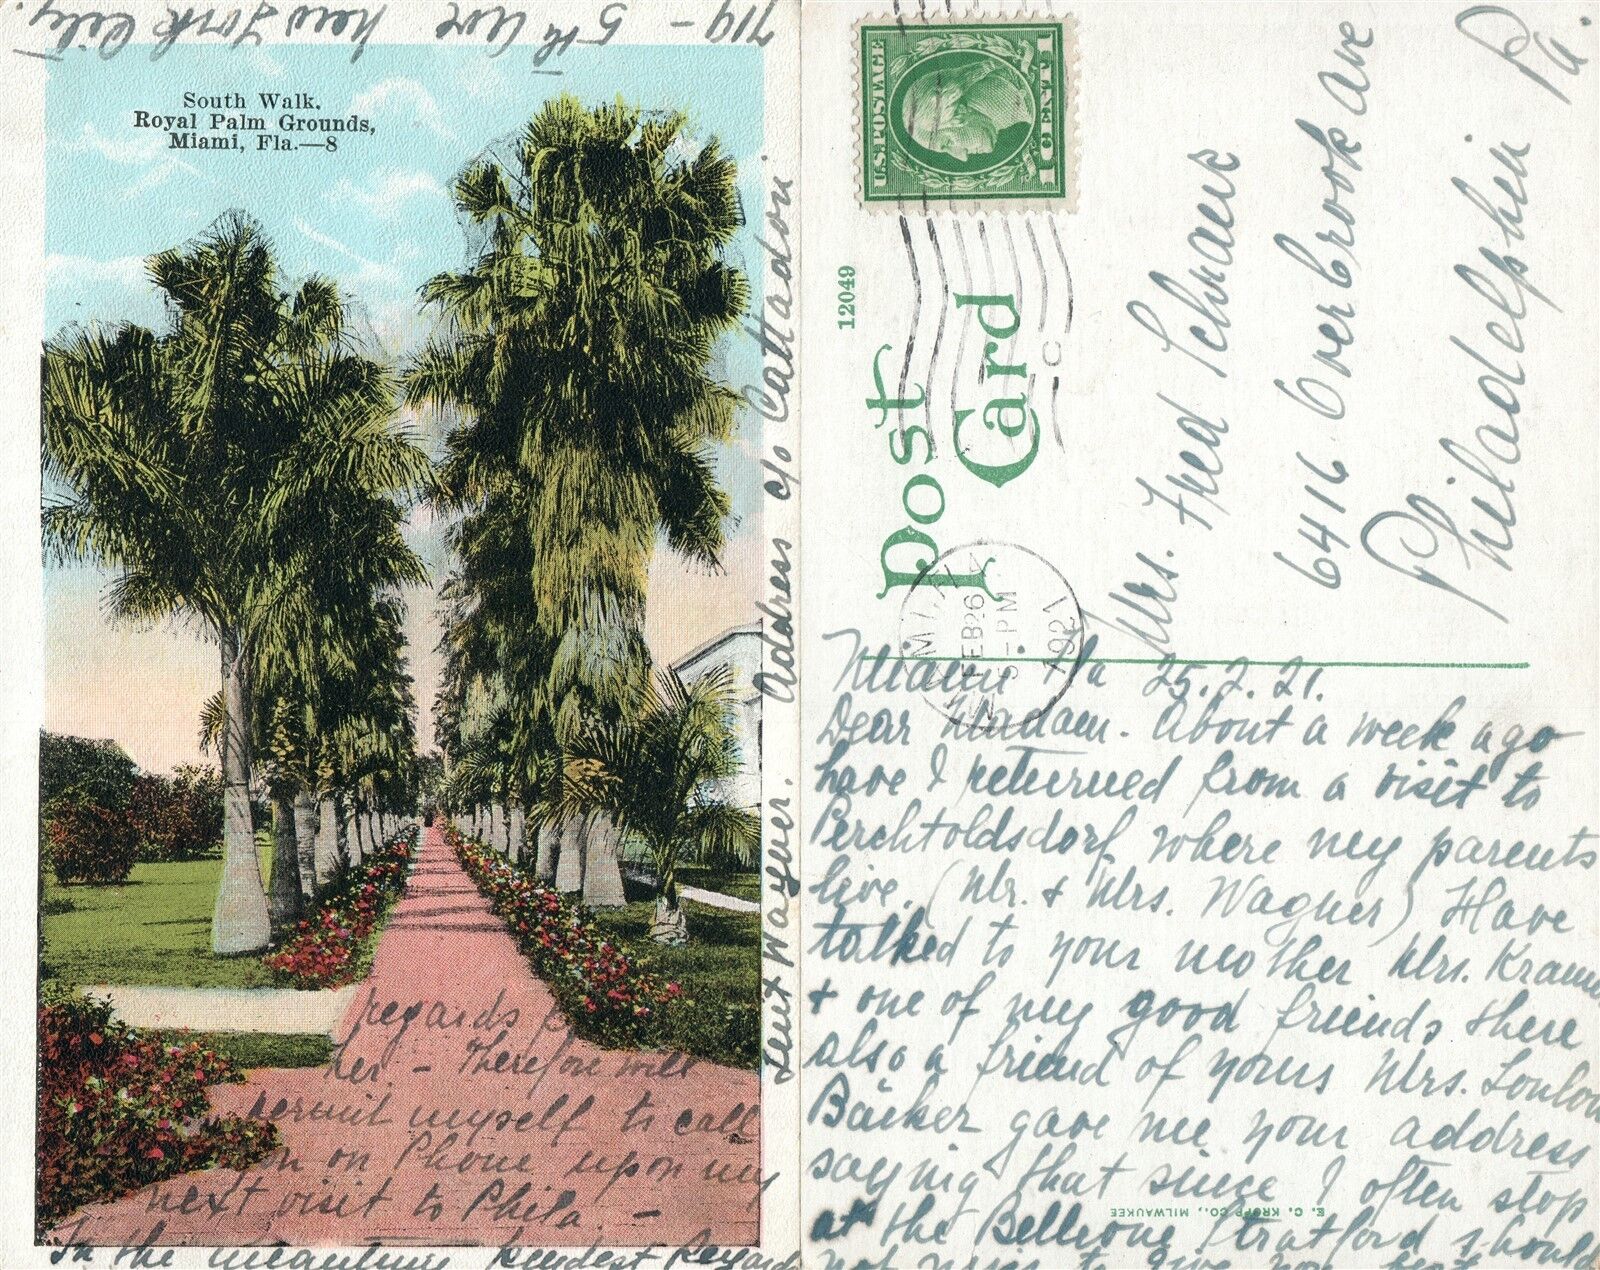 719 - 5th Ave New York City
South Walk,
Royal Palm Grounds,
Miami, Fla.—8
regards
her. - Therefore will
permit myself to call
on Phone upon my
next visit to Phila. -
In the meantime kindest Regards
Wagner. Address c/o Cattadori
U.S. POSTAGE
1 CENT 1
12049
Post
Card
MIAMI
FEB 26
5-PM
1921
C
Mrs. Fred Schwarz
6416 Overbrook Ave
Philadelphia Pa.
Miami Fla 25.2.21.
Dear Madam. About a week ago
have I returned from a visit to
Perchtoldsdorf where my parents
live. (Mr. & Mrs. Wagner) Have
talked to your mother Mrs.
& one of my good friends there
also a friend of yours Mrs.
Bäcker gave me your address
saying that since I often stop
at the Bellevue Stratford should
not miss to give you best
E. C. KROPP CO., MILWAUKEE